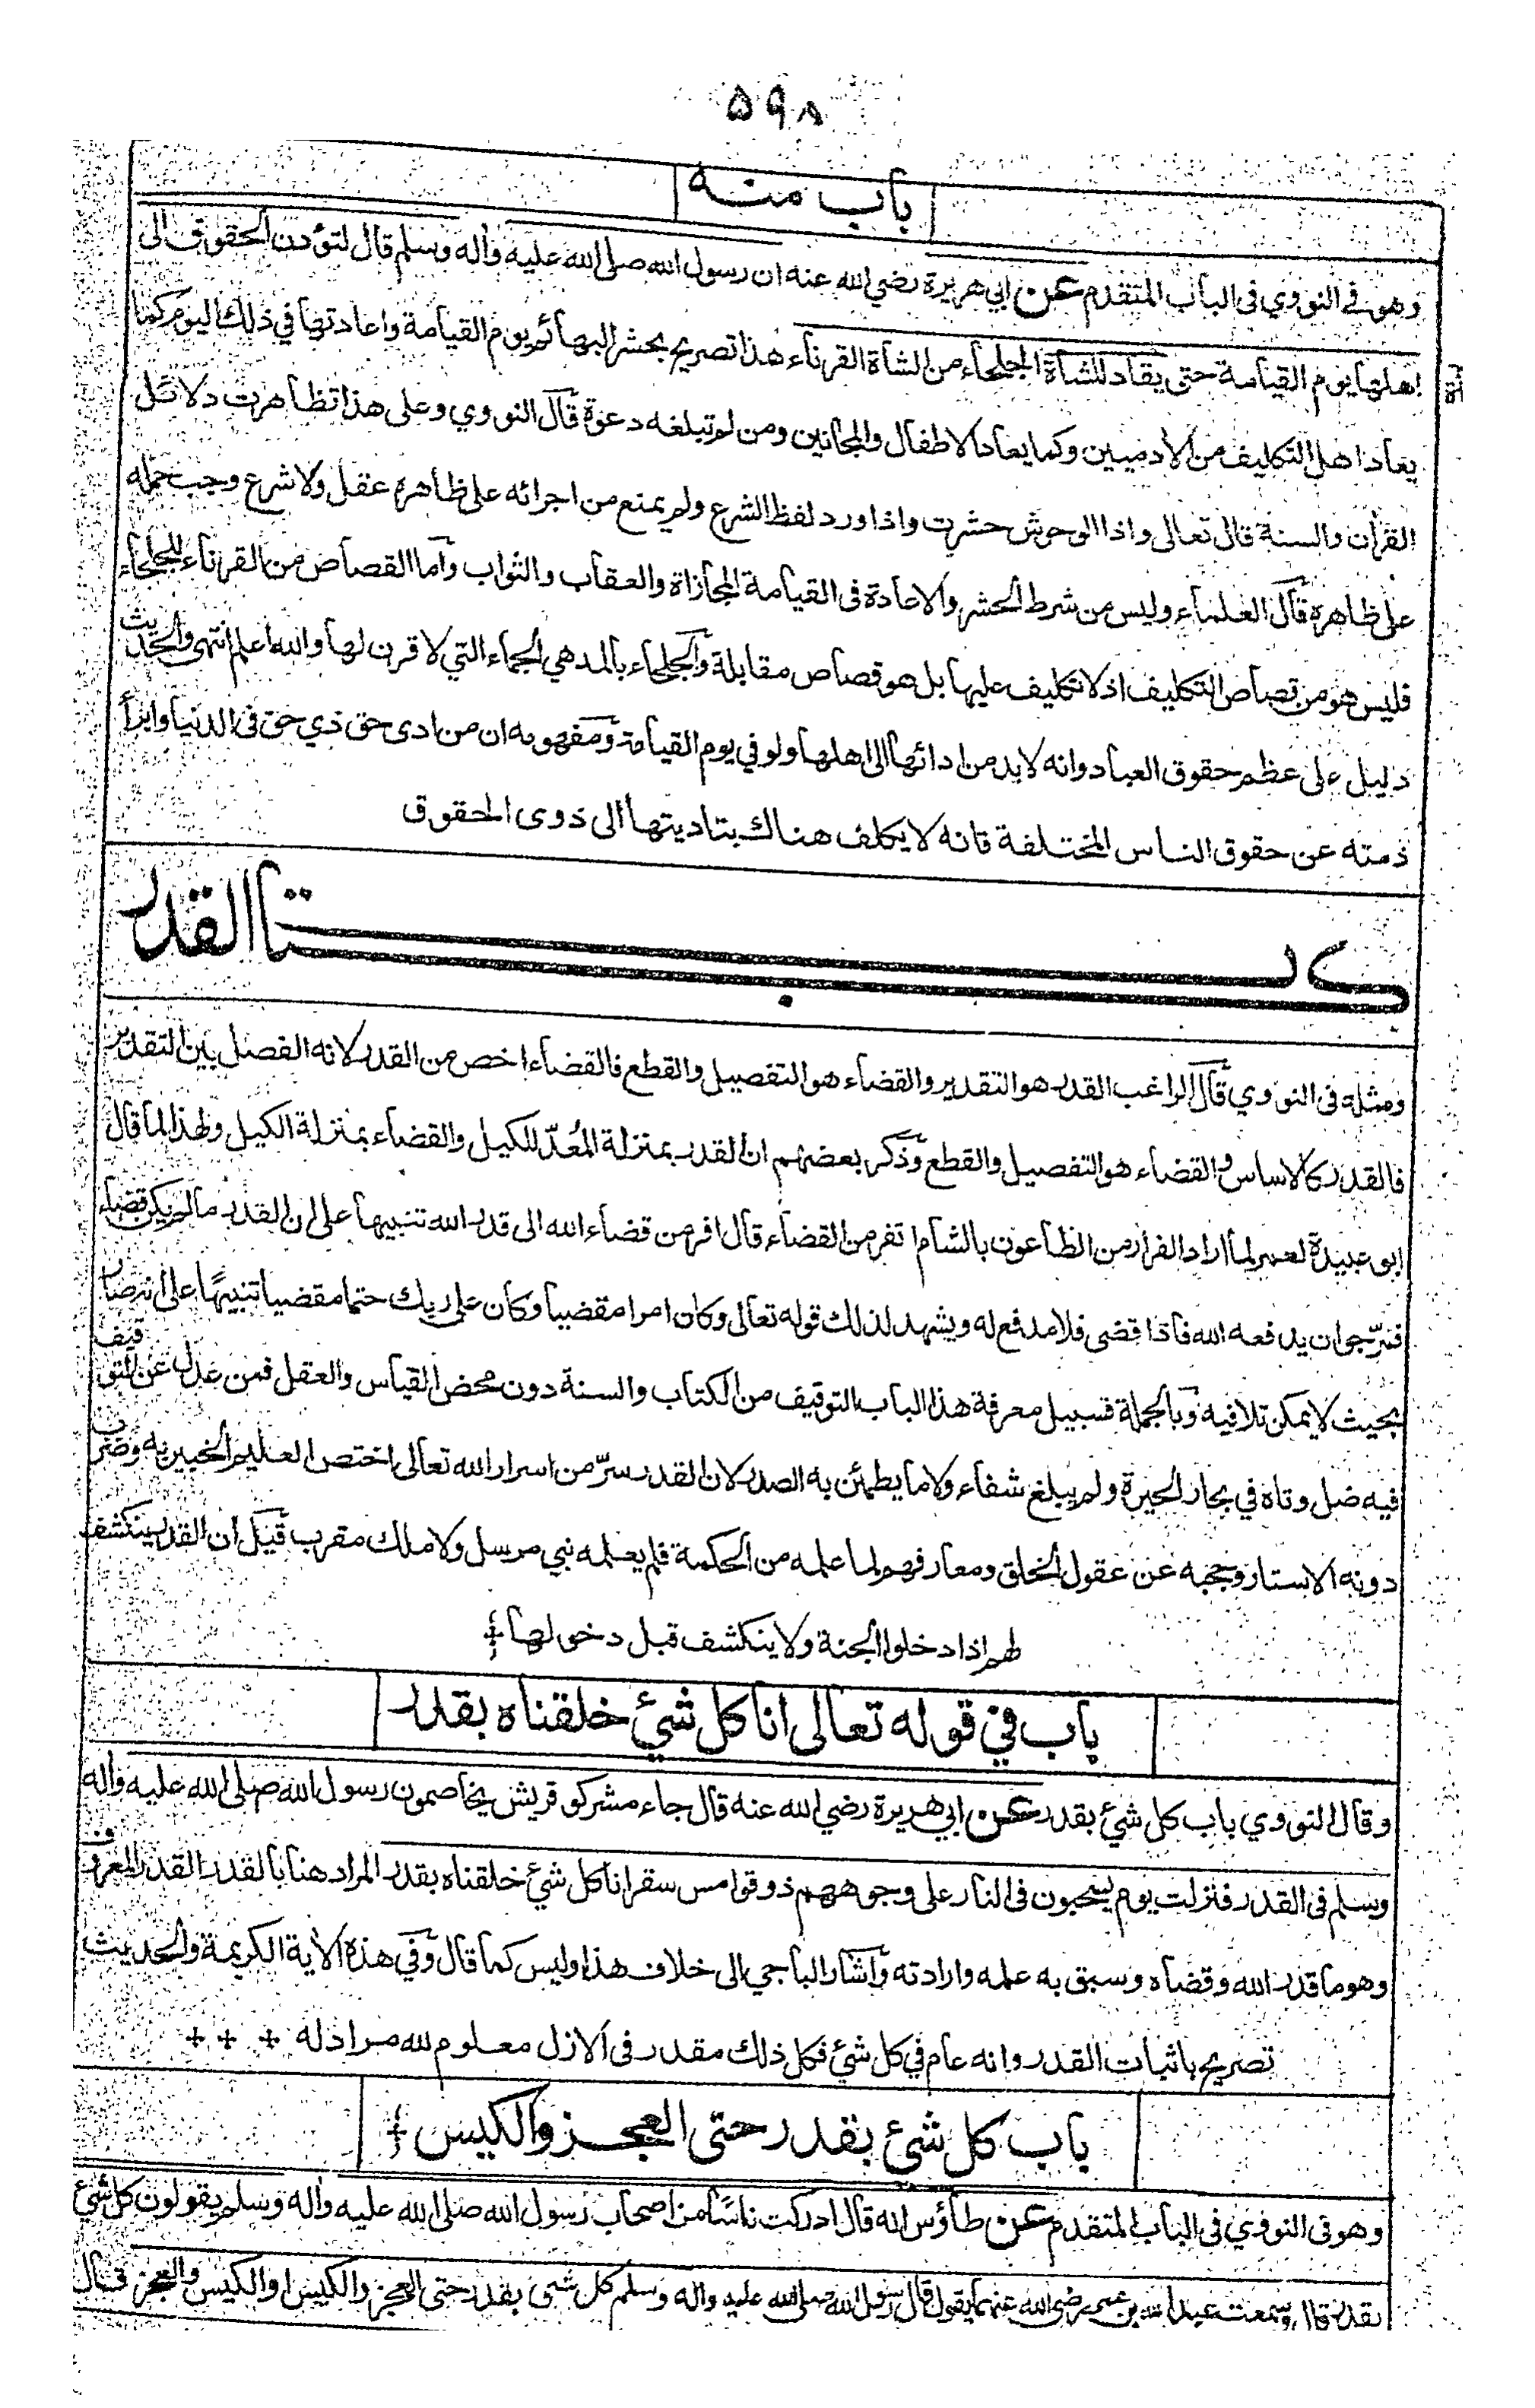 ۵۹۸
باب منه
وهو في النووي في الباب المتقدم عن ابي هريرة رضي الله عنه ان رسول الله صلى الله عليه واله وسلم قال لتؤدن الحقوق الى
اهلها يوم القيامة حتى يقاد للشاة الجلحاء من الشاة القرناء هذا تصريح بحشر البهائم يوم القيامة واعادتها في ذلك اليوم كما
يعاد اهل التكليف من الادميين وكما يعاد الاطفال والمجانين ومن لم تبلغه دعوة قال النووي وعلى هذا تظاهرت دلائل
القرأن والسنة قال تعالى واذا الوحوش حشرت واذا ورد لفظ الشرع ولم يمنع من اجرائه على ظاهره عقل ولا شرع وجب حمله
على ظاهره قال العلماء وليس من شرط الحشر والاعادة في القيامة المجازاة والعقاب والثواب وأما القصاص من القرناء للجلحاء
فليس هو من قصاص التكليف اذ لا تكليف عليها بل هو قصاص مقابلة والجلحاء بالمد هي الجماء التي لا قرن لها والله اعلم انتهى والحديث
دليل على عظم حقوق العباد وانه لا بد من ادائها الى اهلها ولو في يوم القيامة ومفهومه ان من ادى حق ذي حق في الدنيا وابرأ
ذمته عن حقوق الناس المختلفة فانه لا يكلف هناك بتاديتها الى ذوى الحقوق
كتاب القدر
ومثله في النووي قال الراغب القدر هو التقدير والقضاء هو التفصيل والقطع فالقضاء اخص من القدر لانه الفصل بين التقدير
فالقدر كالاساس والقضاء هو التفصيل والقطع وذكر بعضهم ان القدر بمنزلة المُعدّ للكيل والقضاء بمنزلة الكيل ولهذا لما قال
ابو عبيدة لعمر لما اراد الفرار من الطاعون بالشام اتفر من القضاء قال افر من قضاء الله الى قدر الله تنبيها على ان القدر ما لم يكن قضاء
فمرّجو ان يدفعه الله فاذا قضى فلا مدفع له ويشهد لذلك قوله تعالى وكان امرا مقضيا وكان على ربك حتما مقضيا تنبيهًا على انه صار
بحيث لا يمكن تلافيه وبالجملة فسبيل معرفة هذا الباب التوقيف من الكتاب والسنة دون محض القياس والعقل فمن عدل عن التوقيف
فيه ضل وتاه في بحار الحيرة ولم يبلغ شفاء ولا ما يطمئن به الصدر لان القدر سرّ من اسرار الله تعالى اختص العليم الخبير به وضرب
دونه الاستار وحجبه عن عقول الخلق ومعارفهم لما علمه من الحكمة فلم يعلمه نبي مرسل ولا ملك مقرب قيل ان القدر ينكشف
لهم اذا دخلوا الجنة ولا ينكشف قبل دخولها
باب في قوله تعالى انا كل شئ خلقناه بقدر
وقال النووي باب كل شئ بقدر عن ابي هريرة رضي الله عنه قال جاء مشركو قريش يخاصمون رسول الله صلى الله عليه واله
وسلم في القدر فنزلت يوم يسحبون في النار على وجوههم ذوقوا مس سقر انا كل شئ خلقناه بقدر المراد هنا بالقدر القدر المعروف
وهو ما قدر الله وقضاه وسبق به علمه وارادته وأشار الباجي الى خلاف هذا وليس كما قال وفي هذه الأية الكريمة والحديث
تصريح باثبات القدر وانه عام في كل شئ فكل ذلك مقدر في الازل معلوم لله مراد له
باب كل شئ بقدر حتى العجز والكيس
وهو في النووي في الباب المتقدم عن طاؤس انه قال ادركت ناسًا من اصحاب رسول الله صلى الله عليه واله وسلم يقولون كل شئ
بقدر قال وسمعت عبد الله بن عمر رضي الله عنهما يقول قال رسول الله صلى الله عليه واله وسلم كل شئ بقدر حتى العجز والكيس او الكيس والعجز قال